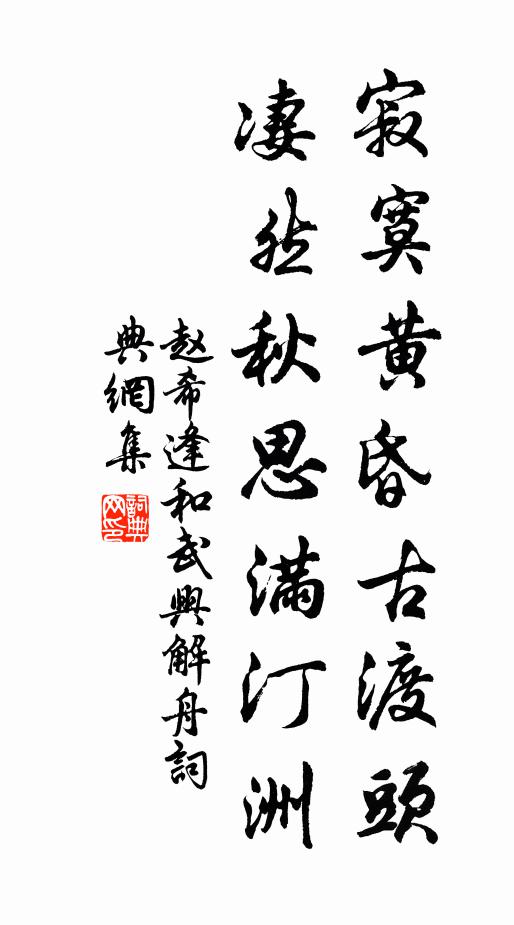 寂寞黄昏古渡頭
凄然秋思滿汀洲
赵希逢和武興解舟詞
典網集
詞典网印